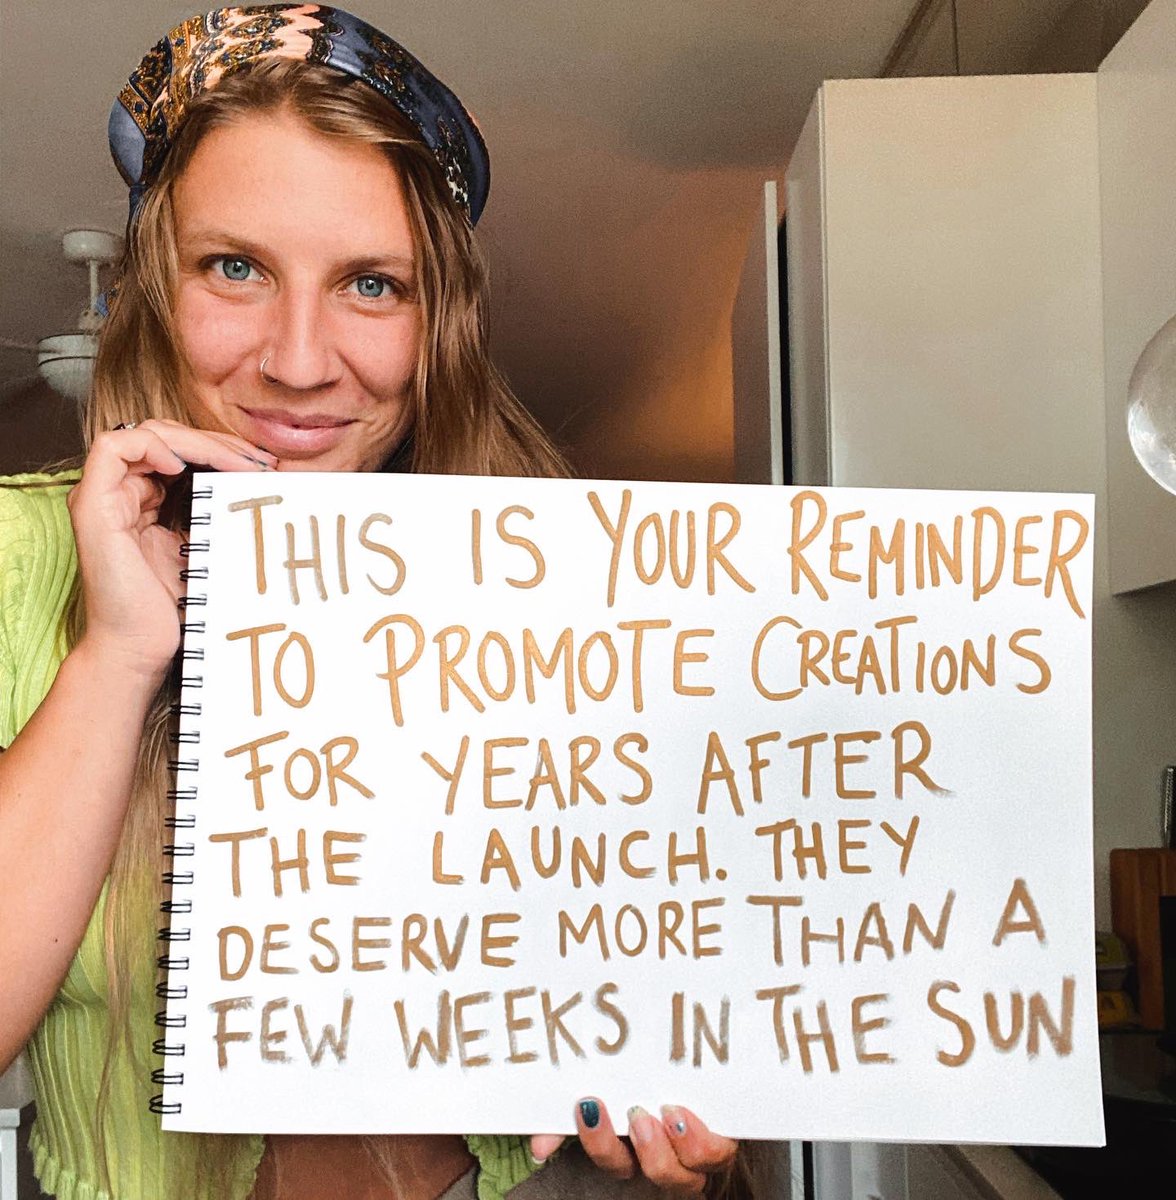 THIS IS YOUR REMINDER
TO PROMOTE CREATIONS
FOR YEARS AFTER
THE LAUNCH. THEY
DESERVE MORE THAN A
FEW WEEKS IN THE SUN